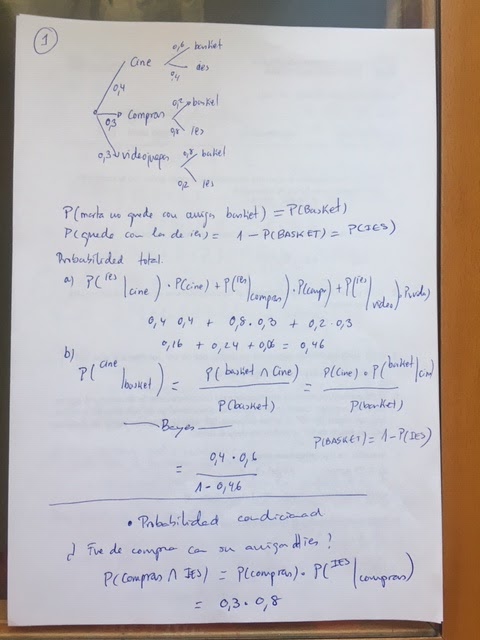 1
Cine 0,6 basket
0,4 ies
0,4
0,3 Compras 0,2 basket
0,8 ies
0,3 videojuegos 0,8 basket
0,2 ies
P(marta no quede con amigos basket) = P(Basket)
P(quede con los de ies) = 1 - P(BASKET) = P(IES)
Probabilidad total.
a) P(ies|cine) · P(cine) + P(ies|compras) · P(compr) + P(ies|video) · P(video)
0,4 · 0,4 + 0,8 · 0,3 + 0,2 · 0,3
0,16 + 0,24 + 0,06 = 0,46
b)
P(cine|basket) = P(basket ∧ Cine) / P(basket) = P(cine) · P(basket|cine) / P(basket)
Bayes
P(BASKET) = 1 - P(IES)
= 0,4 · 0,6 / 1 - 0,46
• Probabilidad condicional
¿ Fue de compra con su amigo ies?
P(Compras ∧ IES) = P(compras) · P(IES|compras)
= 0,3 · 0,8